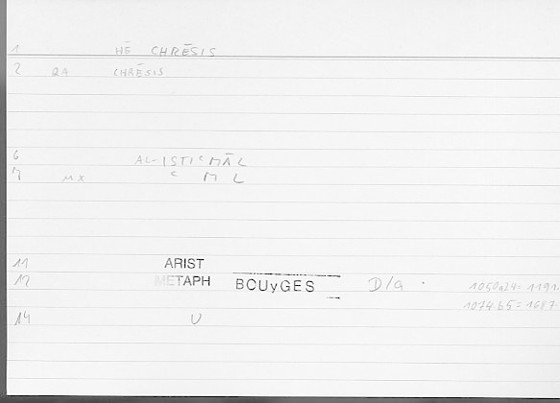 1 HĒ CHRĒSIS
2 QA CHRĒSIS
6 AL-ISTIᶜMĀL
7 MX ᶜ M L
11 ARIST
12 METAPH BOUyGES D/G · 1050a24= 1191.
1074b5= 1687.
14 U